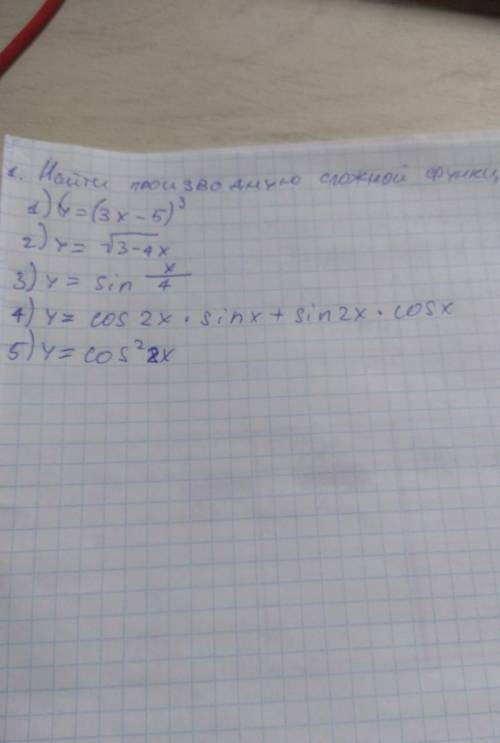 1. Найти производную сложной функц
1) y = (3x - 5)³
2) y = √3-4x
3) y = sin x/4
4) y = cos 2x · sinx + sin2x · cosx
5) y = cos² 2x